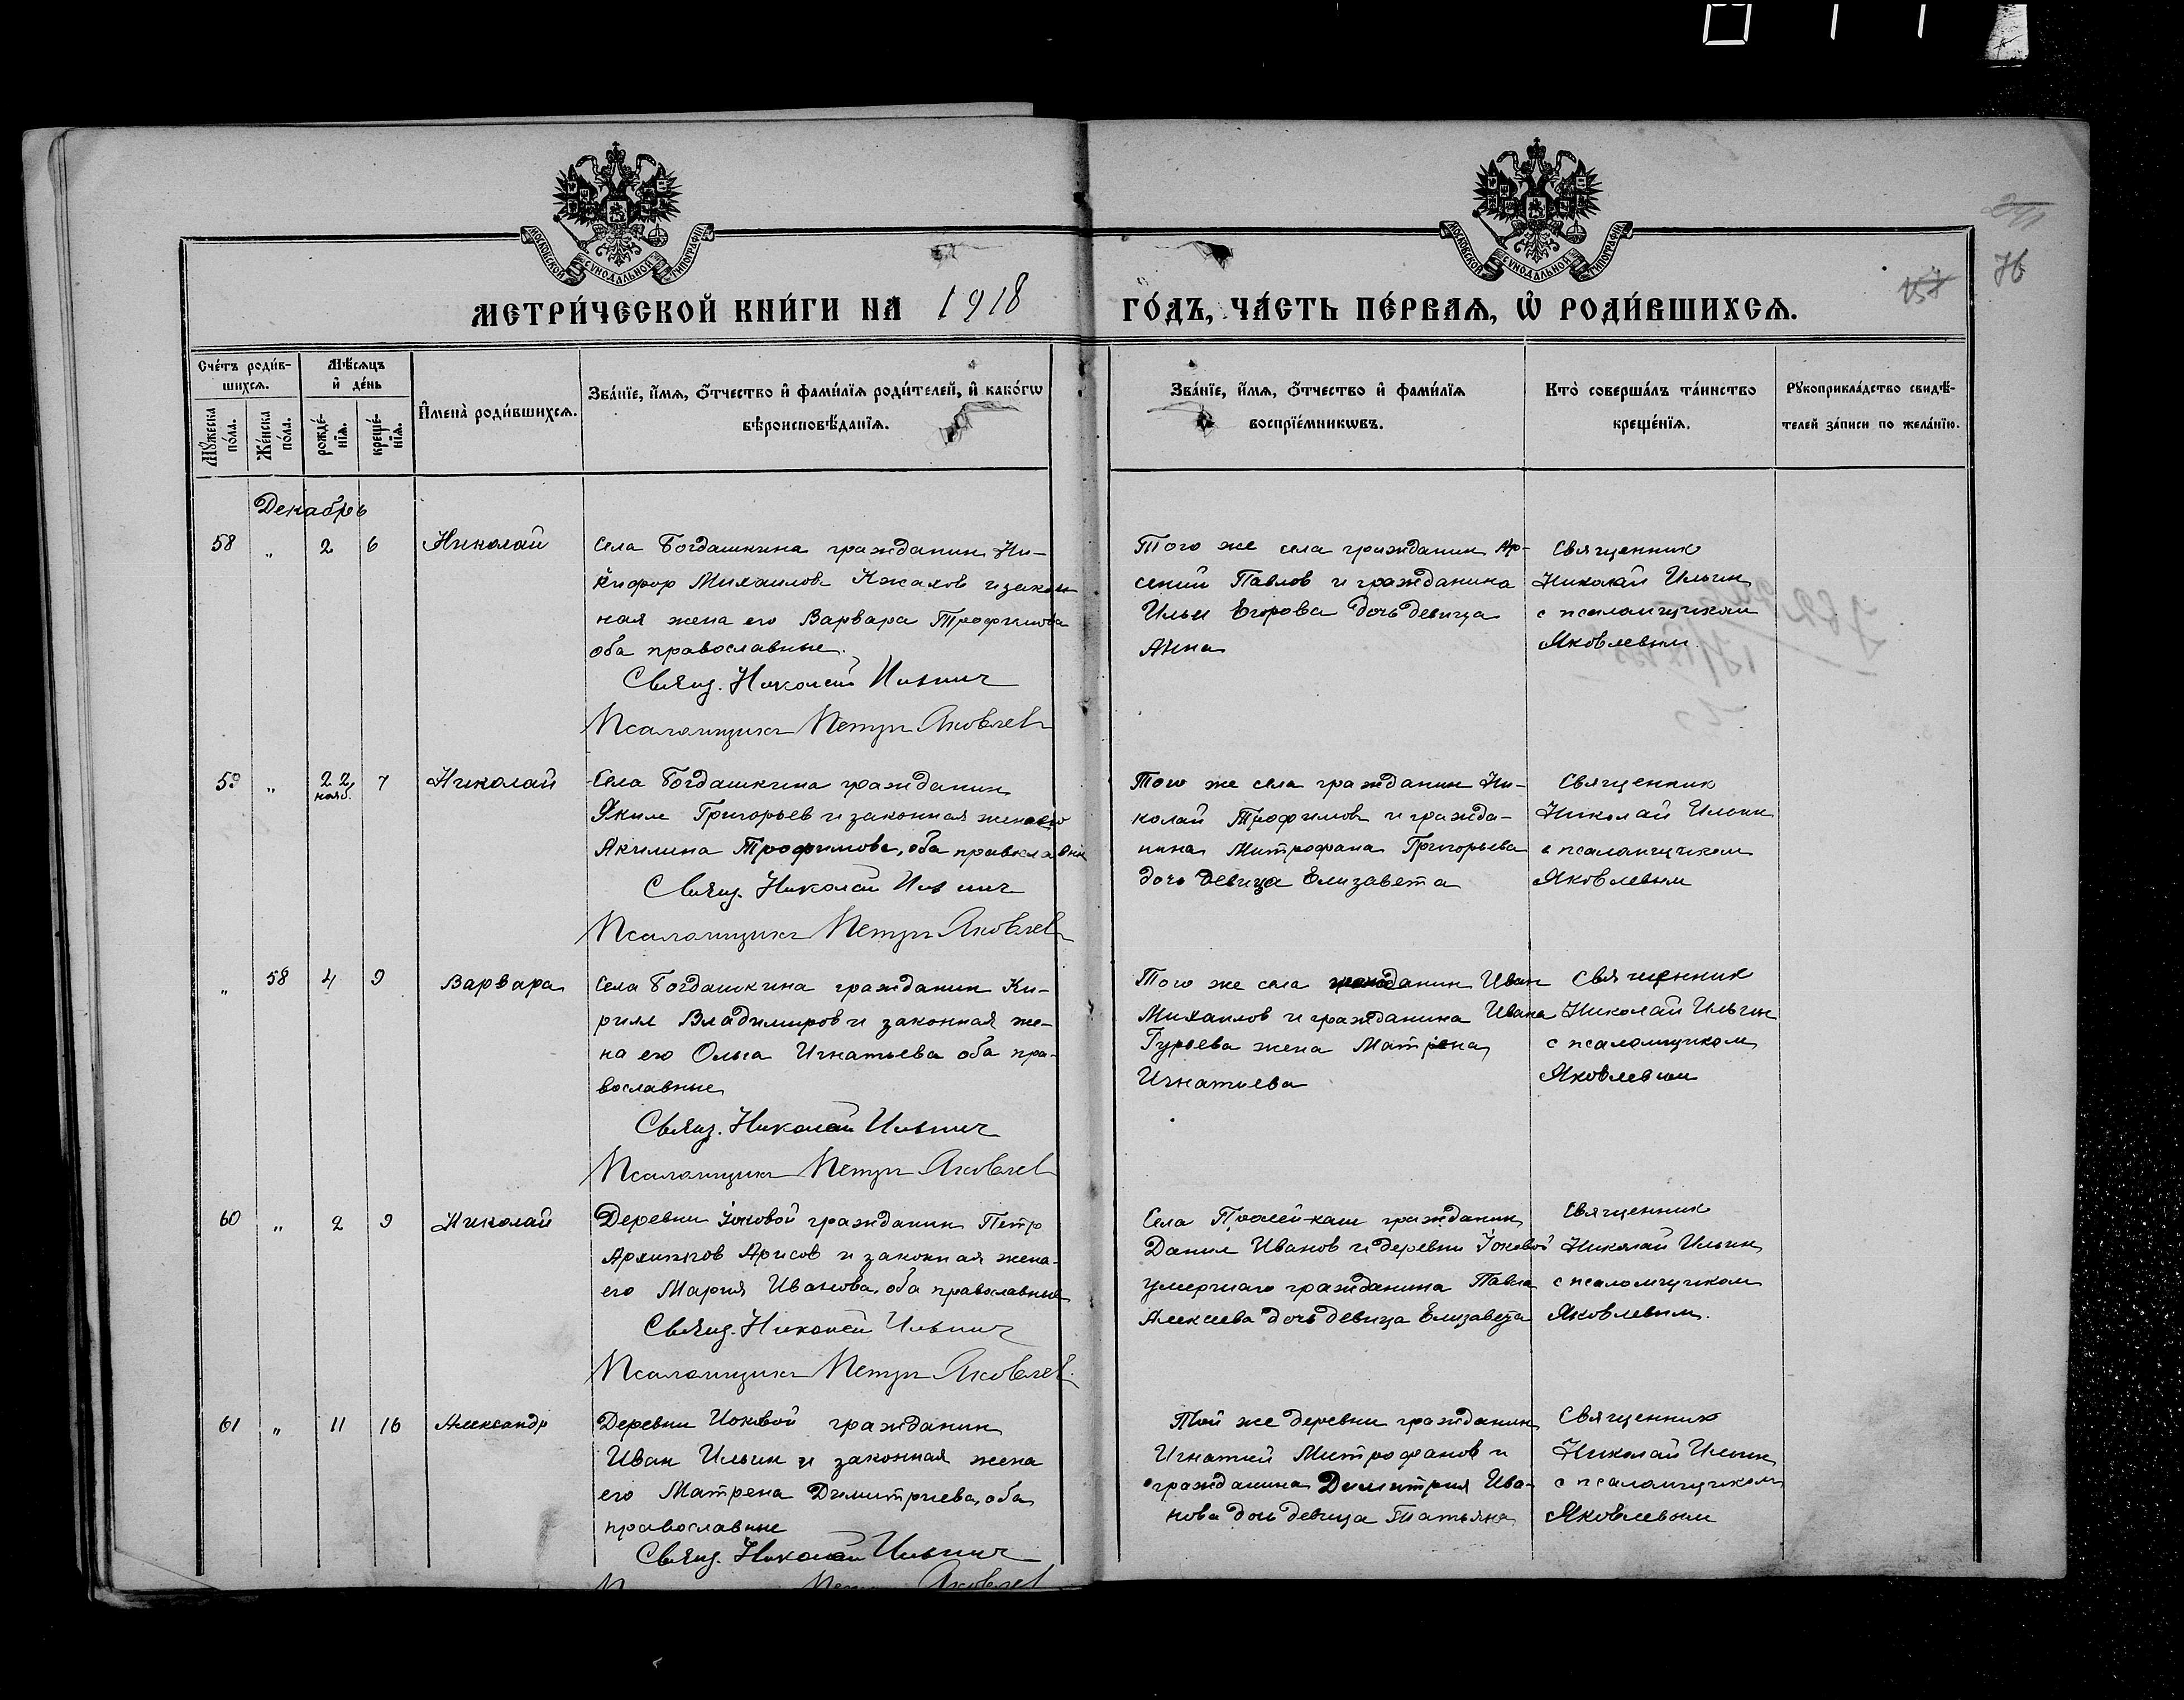 МОСКОВСКОЙ СУНОДАЛЬНОЙ ТИПОГРАФІИ
МОСКОВСКОЙ СУНОДАЛЬНОЙ ТИПОГРАФІИ
МЕТРИ́ЧЕСКОЙ КНИ́ГИ НА 1918 ГО́ДЪ, ЧА́СТЬ ПЕ́РВАѦ, Ѡ РОДИ́ВШИХСѦ.
76
Сче́тъ роди́в-
шихсѧ.
Мѣ́сѧцъ
и҆ де́нь
Мꙋ́жеска
по́ла.
Же́нска
по́ла.
рожде́-
нїѧ.
креще́-
нїѧ.
И҆мена̀ роди́вшихсѧ.
Зва́нїе, и҆́мѧ, ѻ҆́тчество и҆ фами́лїѧ роди́телей, и҆ како́гѡ
вѣроисповѣ́данїѧ.
Зва́нїе, и҆́мѧ, ѻ҆́тчество и҆ фами́лїѧ
воспрїе́мникѡвъ.
Кто̀ соверша́лъ та́инство
креще́нїѧ.
Рꙋкоприкла́дство свидѣ́-
телей за́писи по жела́нїю.
Декабрь
58 " 2 6 Николай
Села Богдашкина гражданин Ни-
кифор Михаилов и закон
ная жена его Варвара Трофимова
оба православные.
Свящ. Николай Ильин
Псаломщик Петр Яковлев
Того же села гражданин Ар-
сений Павлов и гражданина
Ильи Егорова дочь девица
Анна
Священник
Николай Ильин
с псаломщиком
Яковлевым.
59 " 22 нояб. 7 Николай
Села Богдашкина гражданин
Яким Григорьев и законная жена его
Акилина Трофимова, оба православны
Свящ. Николай Ильин
Псаломщик Петр Яковлев
Того же села гражданин Ни-
колай Трофимов и гражда-
нина Митрофана Григорьева
дочь девица Елизавета
Священник
Николай Ильин
с псаломщиком
Яковлевым
" 58 4 9 Варвара
Села Богдашкина гражданин Ки-
рилл Владимиров и законная же-
на его Ольга Игнатьева оба пра-
вославные
Свящ. Николай Ильин
Псаломщик Петр Яковлев
Того же села гражданин Иван
Михаилов и гражданина Ивана
Гурьева жена Матрена
Игнатьева
Священник
Николай Ильин
с псаломщиком
Яковлевым
60 " 2 9 Николай
Деревни Іоковой гражданин Петр
Архипов Арисов и законная жена
его Мария Иванова, оба православные
Свящ. Николай Ильин
Псаломщик Петр Яковлев.
Села гражданин
Данил Иванов и деревни Іоковой
умершаго гражданина Павла
Алексеева дочь девица Елизавета
Священник
Николай Ильин
с псаломщиком
Яковлевым.
61 " 11 16 Александр
Деревни Иоковой гражданин
Иван Ильин и законная жена
его Матрена Димитриева, оба
православные
Свящ. Николай Ильин
Той же деревни гражданин
Игнатий Митрофанов и
гражданина Димитрия Ива-
нова дочь девица Татьяна
Священник
Николай Ильин
с псаломщиком
Яковлевым